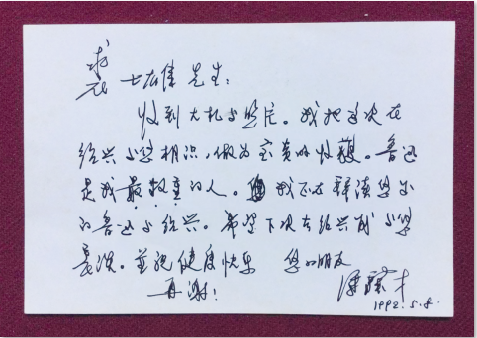 裘士雄先生:
收到大札与照片。我把这次在
绍兴与您相识,做为宝贵的收获。鲁迅
是我最敬重的人。我正在拜读您
的鲁迅与绍兴。希望下次在绍兴能与您
。并祝健康快乐 您的朋友
再谢!
1992.5.8.